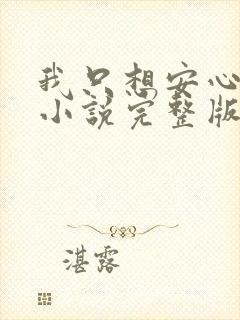 我只想安心
小说完整版
湛露